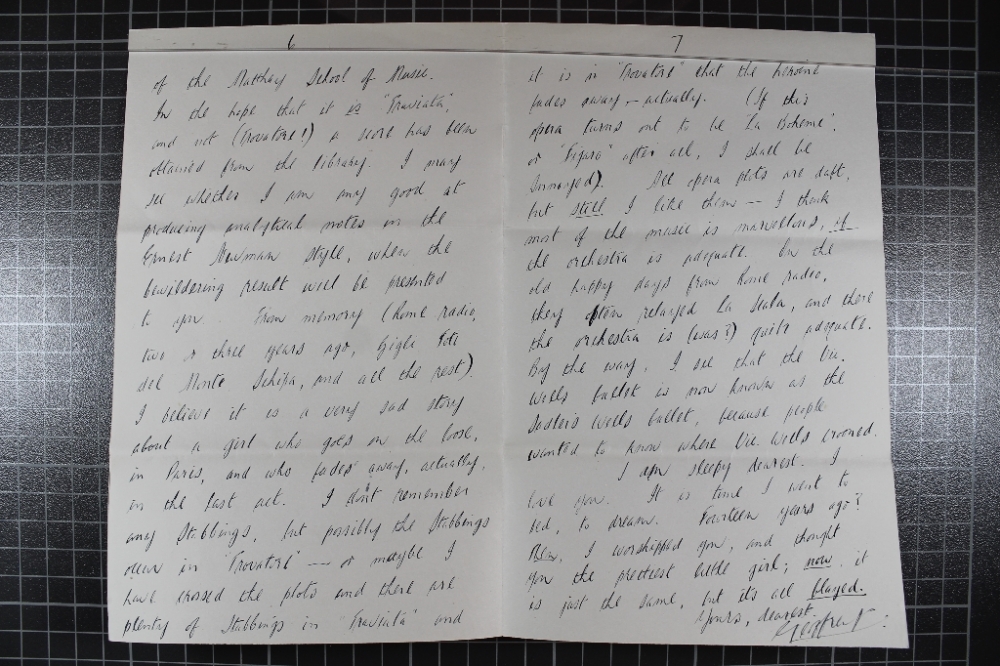 6
of the Matthay School of Music.
In the hope that it is "Traviata",
and not (Trovatore!) a score has been
obtained from the library. I may
see whether I am any good at
producing analytical notes in the
Ernest Newman style, when the
bewildering result will be presented
to you. From memory (Rome radio,
two or three years ago, Gigli Poli
del Monte Schipa, and all the rest).
I believe it is a very sad story
about a girl who goes on the loose,
in Paris, and who fades away, actually,
in the last act. I don't remember
any Stabbings, but possibly the Stabbings
occur in "Trovatore" — or maybe I
have crossed the plots and there are
plenty of Stabbings in "Traviata" and
7
it is in "Trovatore" that the heroine
fades away, - actually. (If this
opera turns out to be "La Boheme".
or "Figaro" after all, I shall be
annoyed). All opera plots are daft,
but still I like them — I think
most of the music is marvellous, if
the orchestra is adequate. In the
old happy days from Rome radio,
they often relayed La Scala, and there
the orchestra is (was?) quite adequate.
By the way, I see that the Vic.
Wells ballet is now known as the
Sadlers Wells ballet, because people
wanted to know where Vic. Wells crooned.
I am sleepy dearest. I
love you. It is time I went to
bed, to dream. Fourteen years ago?
Then, I worshipped you, and thought
you the prettiest little girl; now, it
is just the same, but it's all
Yours, dearest.
Geoffrey.